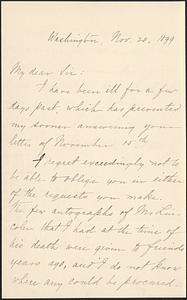 Washington, Nov. 20, 1899
My dear Sir:
I have been ill for a few
days past, which has prevented
my sooner answering your
letter of November 15th
I regret exceedingly not to
be able to oblige you in either
of the requests you make.
The few autographs of Mr. Lin-
coln that I had at the time of
his death were given to friends
years ago, and I do not know
where any could be procured.